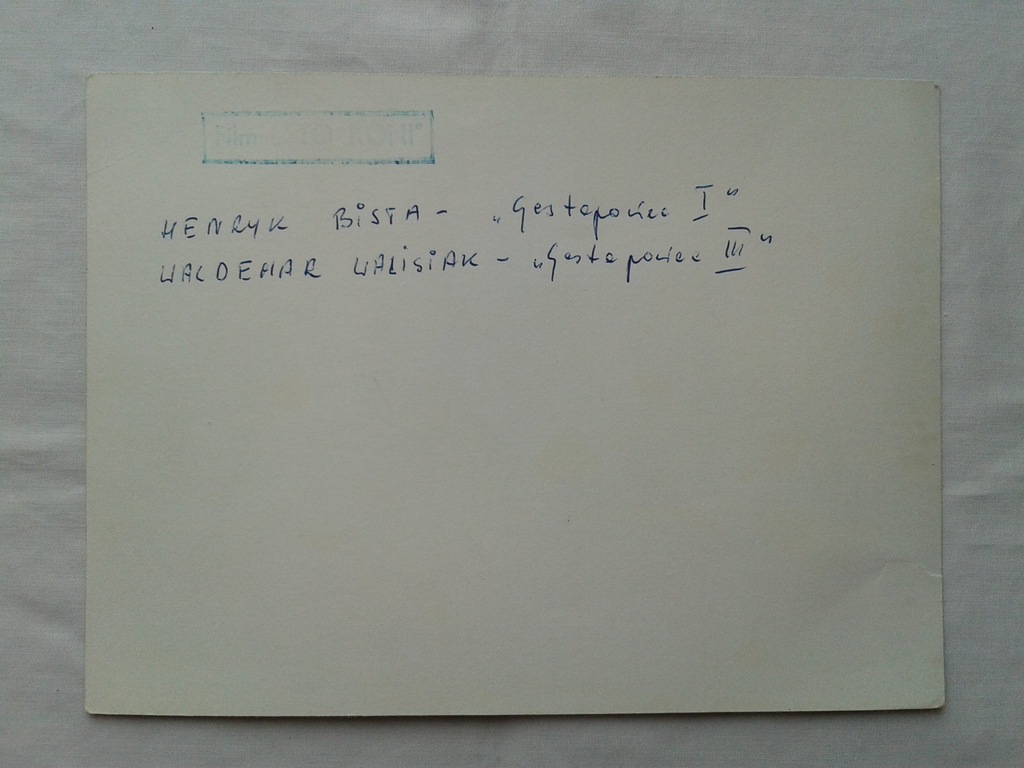 Film
HENRYK BISTA - „Gestapowiec I"
WALDEMAR WALISIAK - „Gestapowiec III"